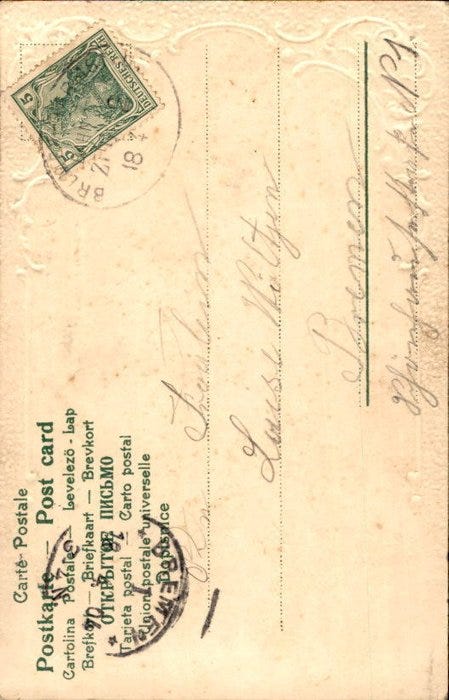 Carte Postale
Postkarte — Post card
Cartolina Postale — Levelező-Lap
Brefkort — Briefkaart — Brevkort
ОТКРЫТОЕ ПИСЬМО
Tarjeta postal — Carto postal
Union postale universelle
Dopisnice
DEUTSCHES REICH
5
5
21
18
BREMEN
Fräulein
Luise Wiltjen
Bremen